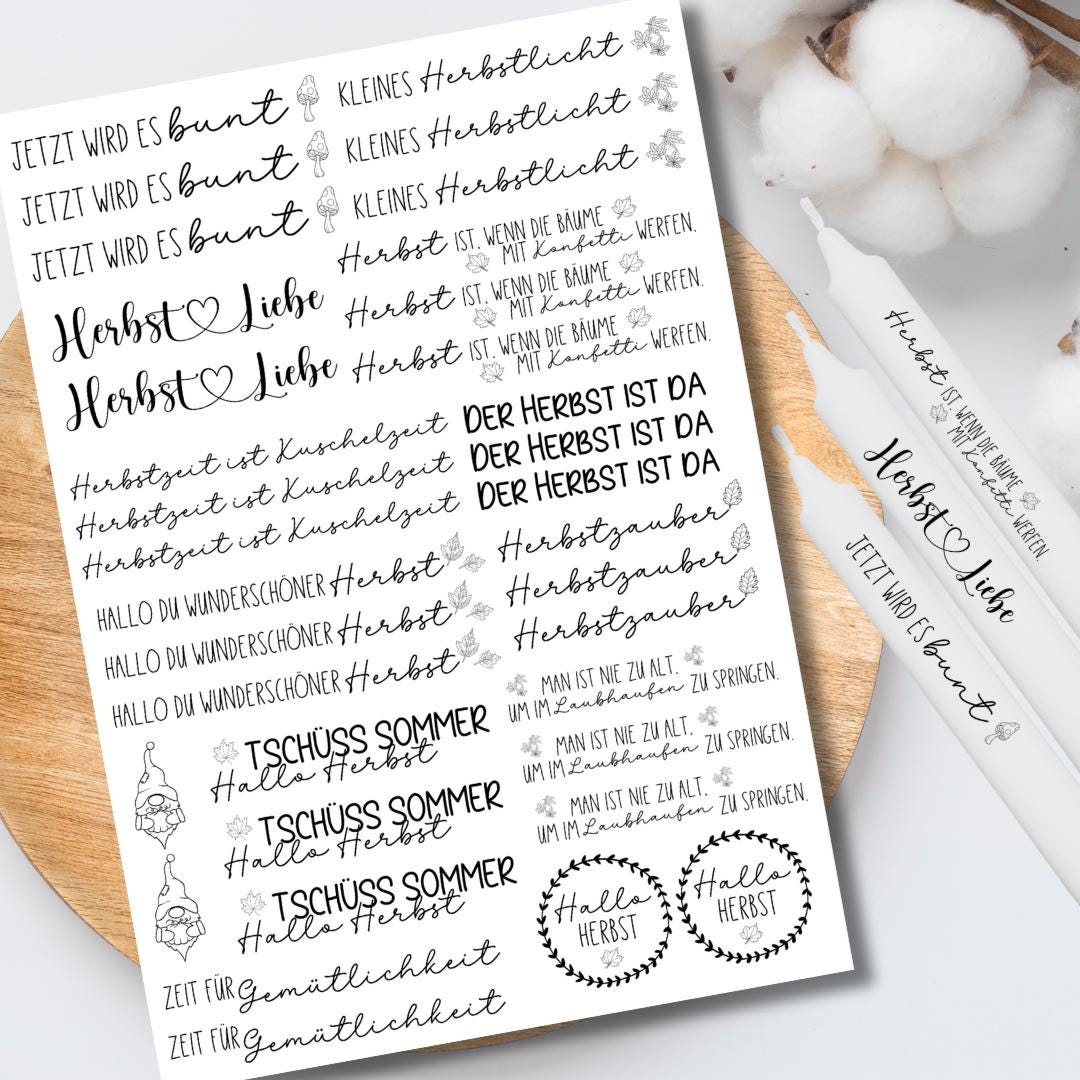 JETZT WIRD ES bunt
JETZT WIRD ES bunt
JETZT WIRD ES bunt
Herbst Liebe
Herbst Liebe
Herbstzeit ist Kuschelzeit
Herbstzeit ist Kuschelzeit
Herbstzeit ist Kuschelzeit
HALLO DU WUNDERSCHÖNER Herbst
HALLO DU WUNDERSCHÖNER Herbst
HALLO DU WUNDERSCHÖNER Herbst
TSCHÜSS SOMMER
Hallo Herbst
TSCHÜSS SOMMER
Hallo Herbst
TSCHÜSS SOMMER
Hallo Herbst
ZEIT FÜR Gemütlichkeit
ZEIT FÜR Gemütlichkeit
KLEINES Herbstlicht
KLEINES Herbstlicht
KLEINES Herbstlicht
Herbst IST, WENN DIE BÄUME
MIT Konfetti WERFEN.
Herbst IST, WENN DIE BÄUME
MIT Konfetti WERFEN.
Herbst IST, WENN DIE BÄUME
MIT Konfetti WERFEN.
DER HERBST IST DA
DER HERBST IST DA
DER HERBST IST DA
Herbstzauber
Herbstzauber
Herbstzauber
MAN IST NIE ZU ALT,
UM IM Laubhaufen ZU SPRINGEN.
MAN IST NIE ZU ALT,
UM IM Laubhaufen ZU SPRINGEN.
MAN IST NIE ZU ALT,
UM IM Laubhaufen ZU SPRINGEN.
Hallo
HERBST
Hallo
HERBST
Herbst IST, WENN DIE BÄUME
MIT Konfetti WERFEN.
Herbst Liebe
JETZT WIRD ES bunt